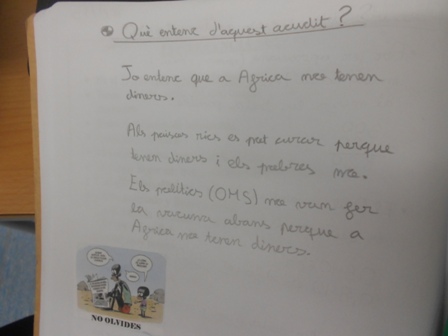 Què entenc d'aquest acudit?
Jo entenc que a Africa no tenen
diners.
Als paisos rics es pot curar perque
tenen diners i els pobres no.
Els polítics (OMS) no van fer
la vacuna abans perque a
Africa no tenen diners.
NO OLVIDES